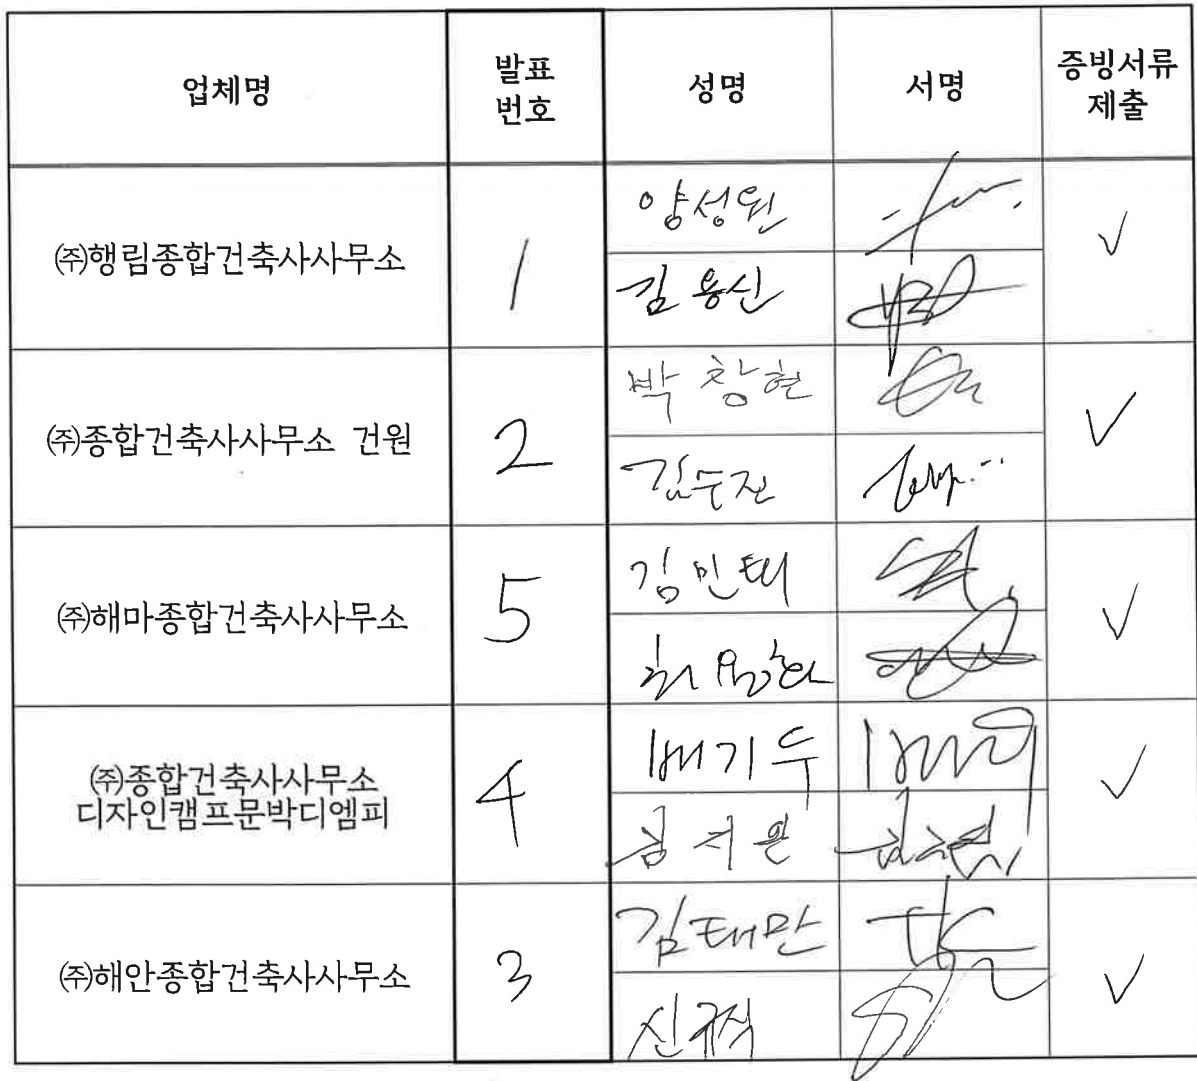 업체명
발표
번호
성명
서명
증빙서류
제출
㈜행림종합건축사사무소
1
양성원
김용신
✓
㈜종합건축사사무소 건원
2
박창현
김수진
✓
㈜해마종합건축사사무소
5
김민태
✓
㈜종합건축사사무소
디자인캠프문박디엠피
4
배기두
✓
㈜해안종합건축사사무소
3
김태만
신규식
✓